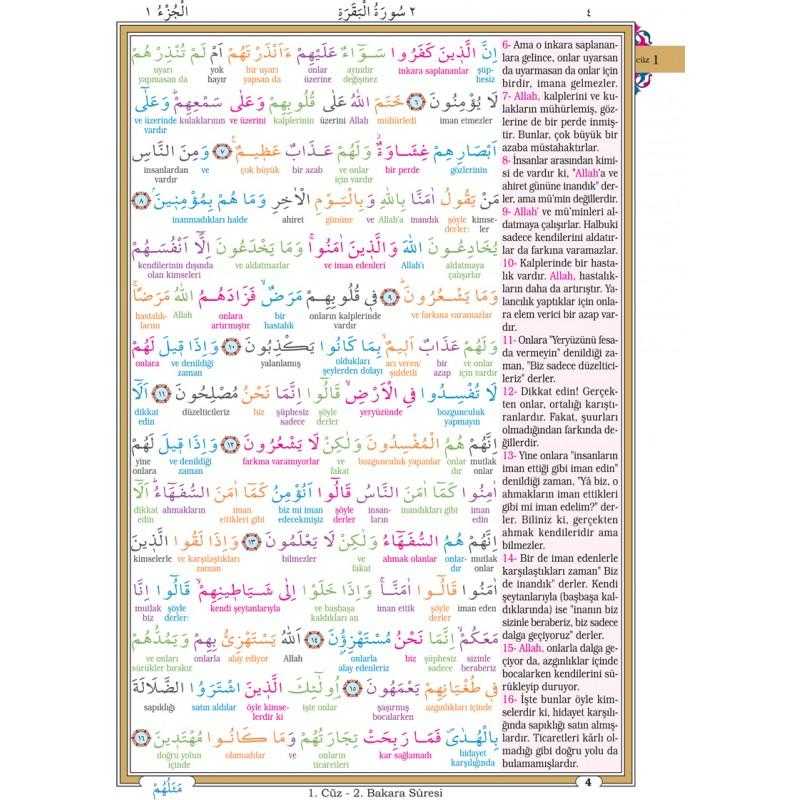 اَلْجُزْءُ ١
٢ سُورَةُ الْبَقَرَةِ
٤
cüz 1
اِنَّ الَّذ۪ينَ كَفَرُوا سَوَٓاءٌ عَلَيْهِمْ ءَاَنْذَرْتَهُمْ اَمْ لَمْ تُنْذِرْهُمْ
şüp- inkara saplananlar aynıdır onlar bir uyarı yok uyarı
hesiz değişmez üzerine yapsan da hayır yapmasan da
لَا يُؤْمِنُونَ ﴿٦﴾ خَتَمَ اللّٰهُ عَلٰى قُلُوبِهِمْ وَعَلٰى سَمْعِهِمْ وَعَلٰٓى
iman etmezler mühürledi Allah üzerini kalplerinin ve üzerini kulaklarının ve üzerinde
vardır
اَبْصَارِهِمْ غِشَاوَةٌ وَلَهُمْ عَذَابٌ عَظ۪يمٌ ﴿٧﴾ وَمِنَ النَّاسِ
gözlerinin bir perde ve onlar bir azab çok büyük ve insanlardan
için vardır vardır
مَنْ يَقُولُ اٰمَنَّا بِاللّٰهِ وَبِالْيَوْمِ الْاٰخِرِ وَمَا هُمْ بِمُؤْمِن۪ينَ ﴿٨﴾
kimse- şöyle inandık Allah'a ve gününe ahiret inanmadıkları halde
ler derler:
يُخَادِعُونَ اللّٰهَ وَالَّذ۪ينَ اٰمَنُوا وَمَا يَخْدَعُونَ اِلَّٓا اَنْفُسَهُمْ
aldatmaya Allah'ı ve iman edenleri ve aldatmazlar kendilerinin dışında
çalışırlar olan kimseleri
وَمَا يَشْعُرُونَ ﴿٩﴾ ف۪ي قُلُوبِهِمْ مَرَضٌ فَزَادَهُمُ اللّٰهُ مَرَضًا
ve farkına varamazlar onların kalplerinde bir onlara Allah hastalık-
vardır hastalık artırmıştır larını
وَلَهُمْ عَذَابٌ اَل۪يمٌ بِمَا كَانُوا يَكْذِبُونَ ﴿١٠﴾ وَاِذَا ق۪يلَ لَهُمْ
ve onlar bir acı veren/ oldukları yalanlamış ve denildiği onlara
için vardır azap şiddetli şeylerden dolayı zaman
لَا تُفْسِدُوا فِي الْاَرْضِ قَالُٓوا اِنَّمَا نَحْنُ مُصْلِحُونَ ﴿١١﴾ اَلَٓا
bozgunculuk yeryüzünde şöyle şüphesiz biz düzelticileriz dikkat
yapmayın derler sadece edin
اِنَّهُمْ هُمُ الْمُفْسِدُونَ وَلٰكِنْ لَا يَشْعُرُونَ ﴿١٢﴾ وَاِذَا ق۪يلَ لَهُمْ
mutlak onlar bozgunculuk yapanlar ve farkına varamıyorlar ve denildiği yine
onlar dır fakat zaman onlara
اٰمِنُوا كَمَٓا اٰمَنَ النَّاسُ قَالُٓوا اَنُؤْمِنُ كَمَٓا اٰمَنَ السُّفَهَٓاءُ اَلَٓا
iman inandıkları gibi insan- şöyle biz mi iman iman ahmakların dikkat
edin ların derler edecekmişiz ettikleri gibi edin
اِنَّهُمْ هُمُ السُّفَهَٓاءُ وَلٰكِنْ لَا يَعْلَمُونَ ﴿١٣﴾ وَاِذَا لَقُوا الَّذ۪ينَ
mutlak onlar- ahmak olanlar ve bilmezler ve karşılaştıkları kimselerle
onlar dır fakat zaman
اٰمَنُوا قَالُٓوا اٰمَنَّا وَاِذَا خَلَوْا اِلٰى شَيَاط۪ينِهِمْ قَالُٓوا اِنَّا
iman eden şöyle iman ettik ve başbaşa kendi şeytanlarıyla şöyle mutlak
derler kaldıkları an derler: biz
مَعَكُمْ اِنَّمَا نَحْنُ مُسْتَهْزِؤُ۫نَ ﴿١٤﴾ اَللّٰهُ يَسْتَهْزِئُ بِهِمْ وَيَمُدُّهُمْ
sizinle şüphesiz biz onlarla Allah alay ediyor onlarla ve onları
beraberiz sadece alay edenleriz sürükler bırakır
ف۪ي طُغْيَانِهِمْ يَعْمَهُونَ ﴿١٥﴾ اُو۬لٰٓئِكَ الَّذ۪ينَ اشْتَرَوُا الضَّلَالَةَ
azgınlıkları içinde şaşırmış işte onlar öyle kimse- satın aldılar sapıklığı
bocalarken lerdir ki
بِالْهُدٰى فَمَا رَبِحَتْ تِجَارَتُهُمْ وَمَا كَانُوا مُهْتَد۪ينَ ﴿١٦﴾
hidayet kar sağlamadı onların ve olamadılar doğru yolun
karşılığında ticaretleri içinde
6- Ama o inkara saplanan-
lara gelince, onları uyarsan
da uyarmasan da onlar için
birdir, imana gelmezler.
7- Allah, kalplerini ve ku-
laklarını mühürlemiş, göz-
lerine de bir perde inmiş-
tir. Bunlar, çok büyük bir
azaba müstahaktırlar.
8- İnsanlar arasından kimi-
si de vardır ki, "Allah'a ve
ahiret gününe inandık" der-
ler, ama mü'min değillerdir.
9- Allah' ve mü'minleri al-
datmaya çalışırlar. Halbuki
sadece kendilerini aldatır-
lar da farkına varamazlar.
10- Kalplerinde bir hasta-
lık vardır. Allah, hastalık-
larını daha da artırıştır. Ya-
lancılık yaptıklar için onla-
ra elem verici bir azap var-
dır.
11- Onlara "Yeryüzünü fesa-
da vermeyin" denildiği za-
man, "Biz sadece düzeltici-
leriz" derler.
12- Dikkat edin! Gerçek-
ten onlar, ortalığı karıştı-
ranlardır. Fakat, şuurları
olmadığından farkında de-
ğillerdir.
13- Yine onlara "insanların
iman ettiği gibi iman edin"
denildiği zaman, "Yâ biz, o
ahmakların iman ettikleri
gibi mi iman edelim?" der-
ler. Biliniz ki, gerçekten
ahmak kendileridir ama
bilmezler.
14- Bir de iman edenlerle
karşılaştıkları zaman" Biz
de inandık" derler. Kendi
şeytanlarıyla (başbaşa kal-
dıklarında) ise "inanın biz
sizinle beraberiz, biz sadece
dalga geçiyoruz" derler.
15- Allah, onlarla dalga ge-
çiyor da, azgınlıklar içinde
bocalarken kendilerini sü-
rükleyip duruyor.
16- İşte bunlar öyle kim-
selerdir ki, hidayet karşılı-
ğında sapıklığı satın almış-
lardır. Ticaretleri kârlı ol-
madığı gibi doğru yolu da
bulamamışlardır.
مَثَلُهُمْ
1. Cüz - 2. Bakara Sûresi
4